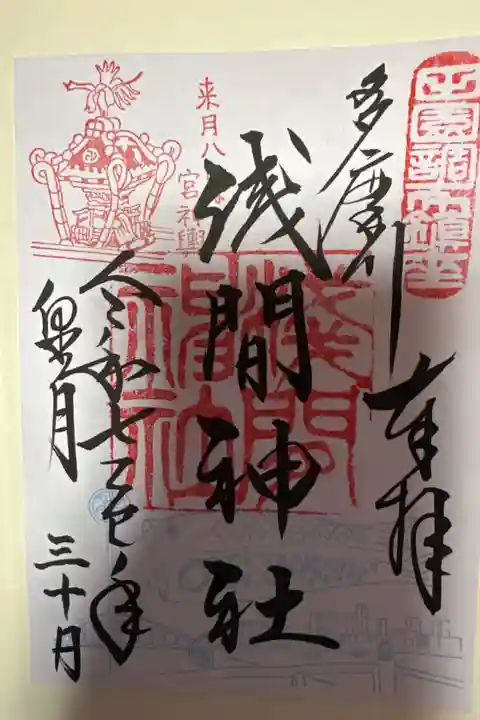 田園調布鎮座
多摩川
奉拝
浅間神社
来月八
宮神輿
令和七乙巳年
皐月
三十日